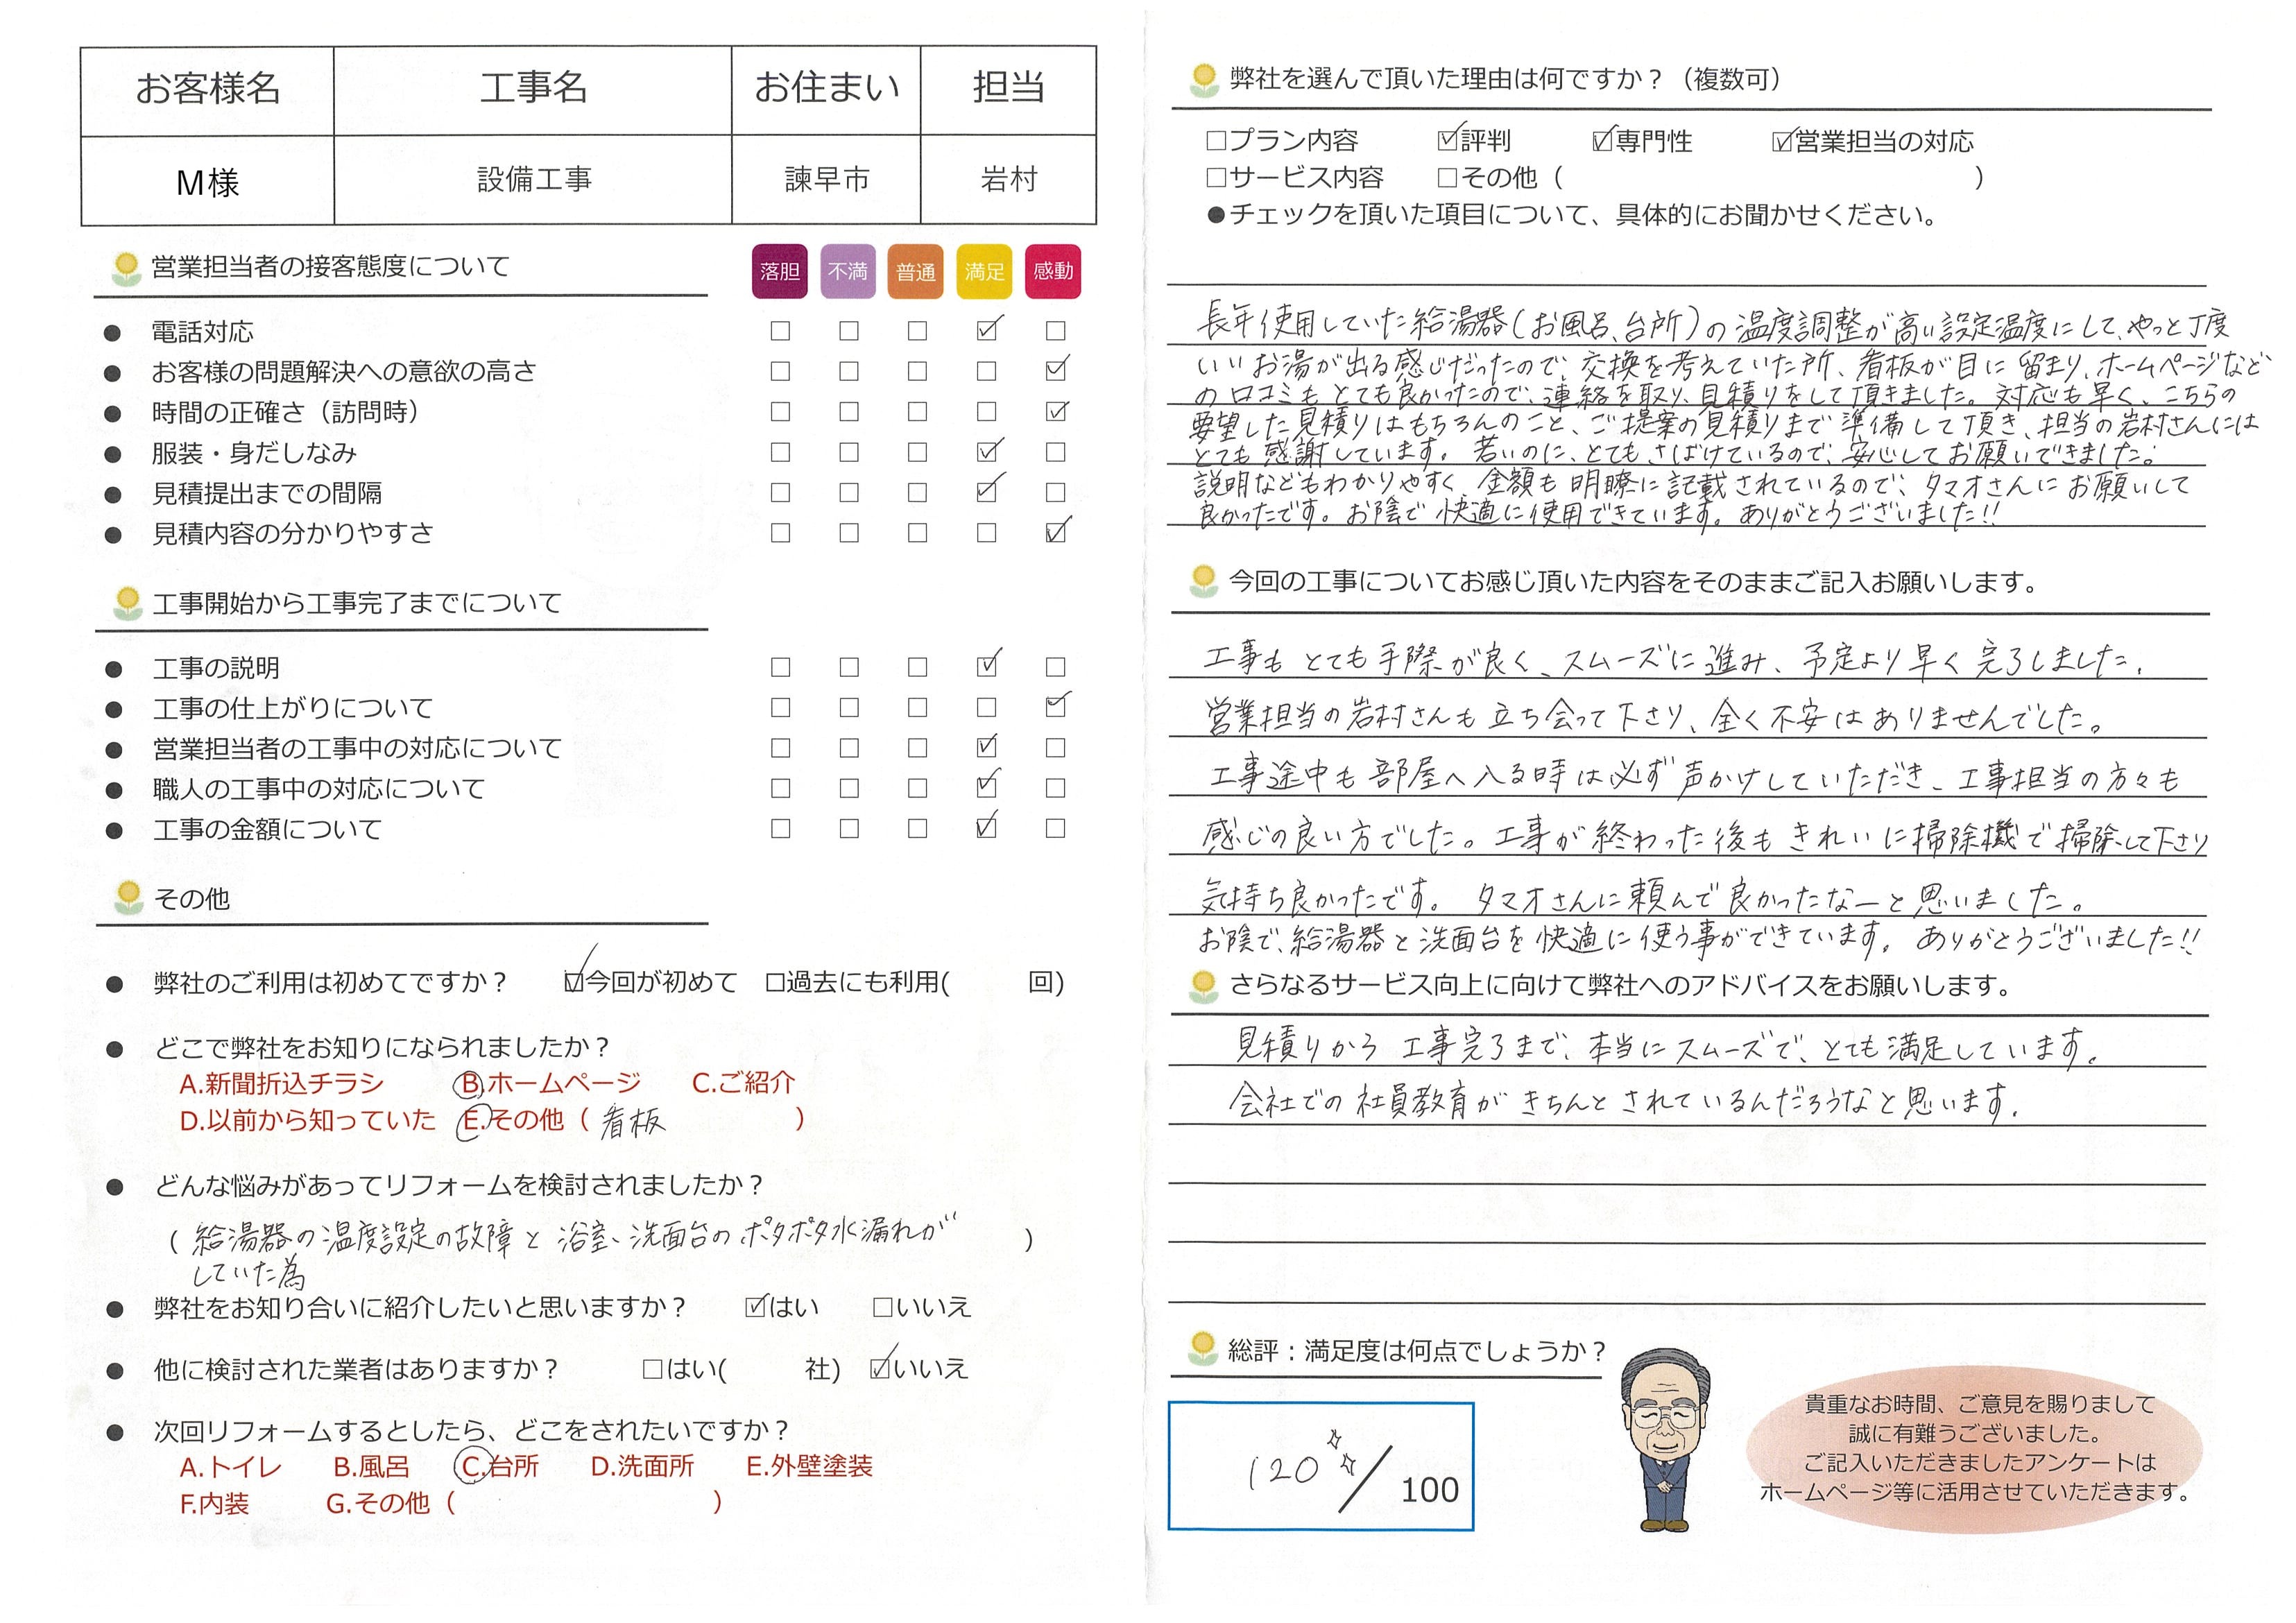 お客様名 工事名 お住まい 担当
M様 設備工事 諫早市 岩村
営業担当者の接客態度について 落胆 不満 普通 満足 感動
● 電話対応 □ □ □ ☑ □
● お客様の問題解決への意欲の高さ □ □ □ □ ☑
● 時間の正確さ（訪問時） □ □ □ □ ☑
● 服装・身だしなみ □ □ □ ☑ □
● 見積提出までの間隔 □ □ □ ☑ □
● 見積内容の分かりやすさ □ □ □ □ ☑
工事開始から工事完了までについて
● 工事の説明 □ □ □ ☑ □
● 工事の仕上がりについて □ □ □ □ ☑
● 営業担当者の工事中の対応について □ □ □ ☑ □
● 職人の工事中の対応について □ □ □ ☑ □
● 工事の金額について □ □ □ ☑ □
その他
● 弊社のご利用は初めてですか？ ☑今回が初めて □過去にも利用( 回)
● どこで弊社をお知りになられましたか？
A.新聞折込チラシ B.ホームページ C.ご紹介
D.以前から知っていた E.その他（ 看板 ）
● どんな悩みがあってリフォームを検討されましたか？
( 給湯器の温度設定の故障と浴室、洗面台のポタポタ水漏れが )
していた為
● 弊社をお知り合いに紹介したいと思いますか？ ☑はい □いいえ
● 他に検討された業者はありますか？ □はい( 社) ☑いいえ
● 次回リフォームするとしたら、どこをされたいですか？
A.トイレ B.風呂 C.台所 D.洗面所 E.外壁塗装
F.内装 G.その他（ ）
弊社を選んで頂いた理由は何ですか？（複数可）
□プラン内容 ☑評判 ☑専門性 ☑営業担当の対応
□サービス内容 □その他（ ）
●チェックを頂いた項目について、具体的にお聞かせください。
長年使用していた給湯器(お風呂、台所)の温度調整が高い設定温度にして、やっと丁度
いいお湯が出る感じだったので、交換を考えていた所、看板が目に留まり、ホームページなど
の口コミもとても良かったので、連絡を取り、見積りをして頂きました。対応も早く、こちらの
要望した見積りはもちろんのこと、ご提案の見積りまで準備して頂き、担当の岩村さんには
とても感謝しています。若いのに、とてもさばけているので、安心してお願いできました。
説明などもわかりやすく金額も明瞭に記載されているので、タマオさんにお願いして
良かったです。お陰で快適に使用できています。ありがとうございました!!
今回の工事についてお感じ頂いた内容をそのままご記入お願いします。
工事もとても手際が良く、スムーズに進み、予定より早く完了しました。
営業担当の岩村さんも立ち会って下さり、全く不安はありませんでした。
工事途中も部屋へ入る時は必ず声かけしていただき、工事担当の方々も
感じの良い方でした。工事が終わった後もきれいに掃除機で掃除して下さり
気持ち良かったです。タマオさんに頼んで良かったなーと思いました。
お陰で、給湯器と洗面台を快適に使う事ができています。ありがとうございました!!
さらなるサービス向上に向けて弊社へのアドバイスをお願いします。
見積りから工事完了まで、本当にスムーズで、とても満足しています。
会社での社員教育がきちんとされているんだろうなと思います。
総評：満足度は何点でしょうか？
120/100
貴重なお時間、ご意見を賜りまして
誠に有難うございました。
ご記入いただきましたアンケートは
ホームページ等に活用させていただきます。